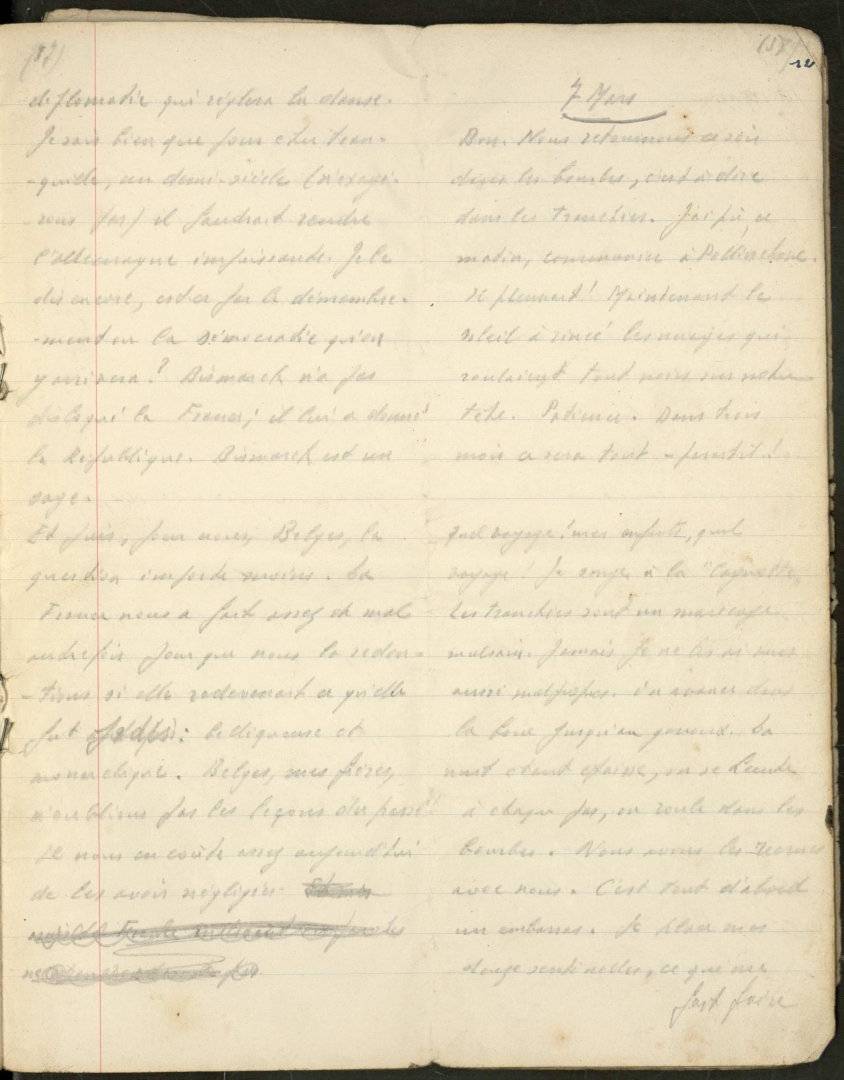 (57)
diplomatie qui règlera la danse.
Je sais bien que pour être tran-
-quille, un demi-siècle (n'exagé-
rons pas) il faudrait rendre
l'Allemagne impuissante. Je le
dis encore, est-ce par le démembre-
-ment ou la démocratie qu'on
y arrivera? Bismarck n'a pas
disloqué la France; il lui a donné
la République. Bismarck est un
sage.
Et puis, pour nous, Belges, la
question importe moins. La
France nous a fait assez de mal
autrefois pour que nous la redou-
-tions si elle redevenait ce qu'elle
fut : belliqueuse et
monarchique. Belges, mes frères,
n'oublions pas les leçons du passé!
Il nous en coûte assez aujourd'hui
de les avoir négligées.
(58)
12
7 Mars
Bon. Nous retournons ce soir
dans les bourbes, c'est à dire
dans les tranchées. J'ai pu, ce
matin, communier à Pollinchove.
Il pleuvait! Maintenant le
soleil a rincé les nuages qui
roulaient tout noirs sur notre
tête. Patience. Dans trois
mois ce sera tout - parait-il!
Quel voyage! mes enfants, quel
voyage! Je songe à la
Les tranchées sont un marécage
malsain. Jamais je ne les ai vues
aussi malpropres. On avance dans
la boue jusqu'au genoux. La
nuit étant épaisse, on se heurte
à chaque pas, on roule dans les
bourbes. Nous avons les recrues
avec nous. C'est tout d'abord
un embarras. Je place mes
douze sentinelles, ce qui me
fait faire